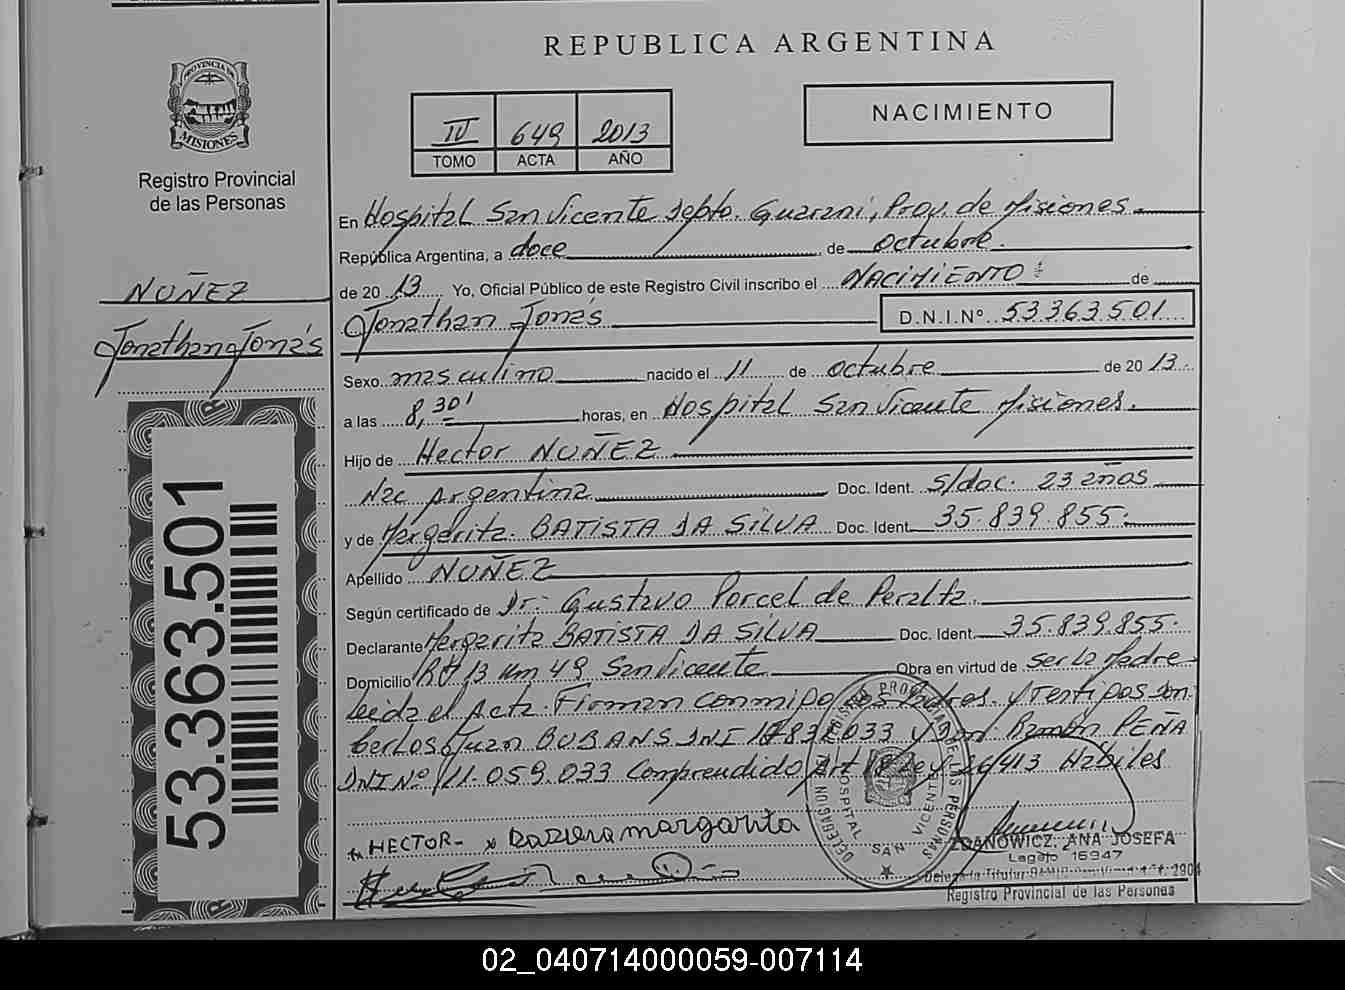 REPUBLICA ARGENTINA
PROVINCIA DE
MISIONES
Registro Provincial
de las Personas
NUÑEZ
Jonathan Jonás
53.363.501
IV 649 2013
TOMO ACTA AÑO
NACIMIENTO
En Hospital San Vicente Depto. Guarani, Prov. de Misiones
República Argentina, a doce de octubre.
de 2013 Yo, Oficial Público de este Registro Civil inscribo el NACIMIENTO de
Jonathan Jonás D.N.I.Nº 53363501
Sexo masculino nacido el 11 de octubre de 2013.
a las 8,30' horas, en Hospital San Vicente Misiones.
Hijo de Hector NUÑEZ
Nac Argentina Doc. Ident. s/doc. 23 años
y de Margarita BATISTA DA SILVA Doc. Ident. 35.839.855.
Apellido NUÑEZ
Según certificado de Dr. Gustavo Porcel de Peralta.
Declarante Margarita BATISTA DA SILVA Doc. Ident. 35.839.855.
Domicilio 13 Km 49 San Vicente Obra en virtud de ser la Madre
leida el Acta. Firman conmigo los Padres y Testigos don
Carlos Juan DNI y don Ramón PEÑA
DNI Nº 11.059.033 Comprendido Art Ley 26413 Hábiles
HECTOR- margarita
DELEGACION HOSPITAL SAN VICENTE
ZDANOWICZ, ANA JOSEFA
Legajo 15947
Delegada Titular
Registro Provincial de las Personas
02_040714000059-007114